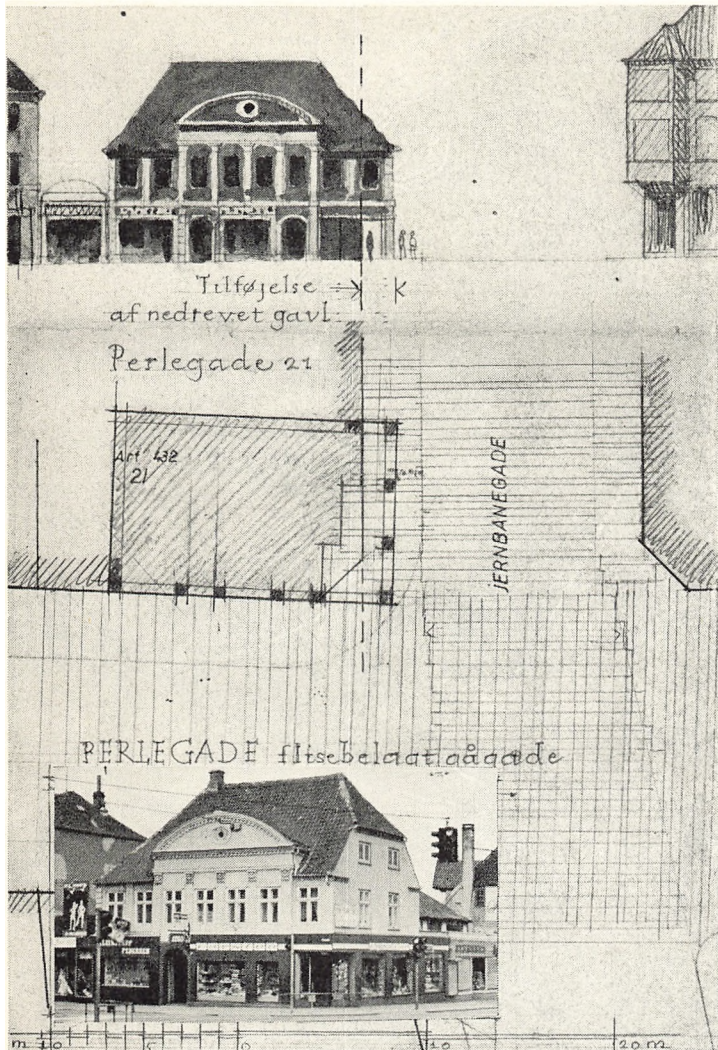 Tilføjelse
af nedrevet gavl:
Perlegade 21
Art 432
21
JERNBANEGADE
PERLEGADE flisebelagt gågade
m 10 5 0 10 20 m